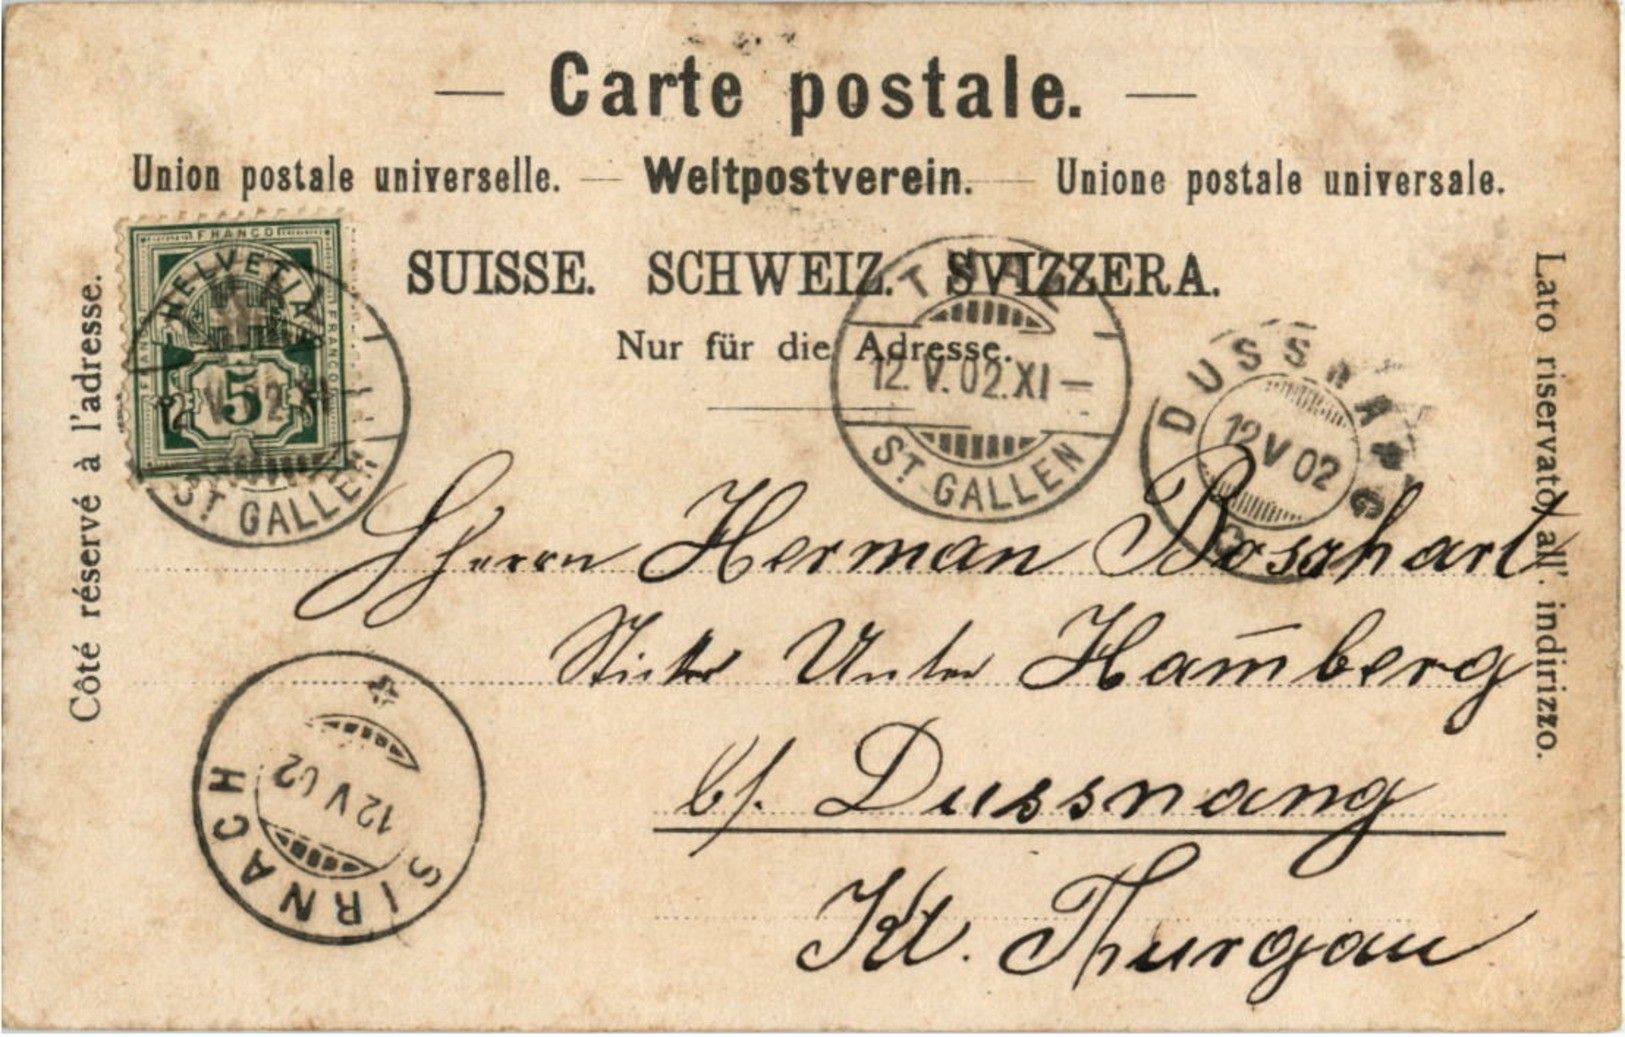 Carte postale.
Union postale universelle. — Weltpostverein. — Unione postale universale.
SUISSE. SCHWEIZ. SVIZZERA.
Nur für die Adresse.
Côté réservé à l'adresse.
Lato riservato all'. indirizzo.
FRANCO
HELVETIA
FRANCO
5
ST GALLEN
12.V.02.XI—
ST. GALLEN
DUSSNANG
12 V 02
Herrn Herman Bosshart
Sticker Unter Ham̄berg
b/. Dussnang
Kt. Thurgau
SIRNACH
12 V 02